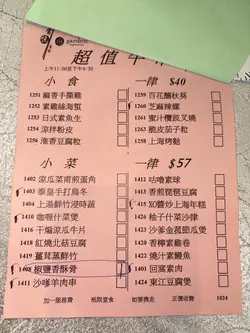 garden
超值午
上午11:00至下午4:30
小食 一律 $40
1251 麻香手撕雞
1252 素雞絲海蜇
1253 日式素魚生
1254 涼拌粉皮
1256 淮香豆腐乾
1259 百花釀秋葵
1260 芝麻辣螺
1261 蜜汁欖豉叉燒
1263 脆皮茄子粒
1258 上海烤麩
小菜 一律 $57
1402 涼瓜菜甫煎蛋角
1403 泰皇手打烏冬
1404 上湯鮮竹浸時蔬
1410 咖喱什菜煲
1418 涼瓜
1419 紅燒北菇豆腐
1449 薑茸蒸鮮竹
1408 椒鹽香酥骨
1411 沙嗲羊肉串
1412 咕嚕素球
1413 香煎琵琶豆腐
1415 XO醬炒上海年糕
1426 柚子什菜沙律
1423 沙爹金菇節瓜煲
1420 香檸素雞卷
1407 燒汁素鰻魚
1401 回窩素肉
1422 東江豆腐煲
加一服務費 祇限堂食 如要携走 正價收費 1024